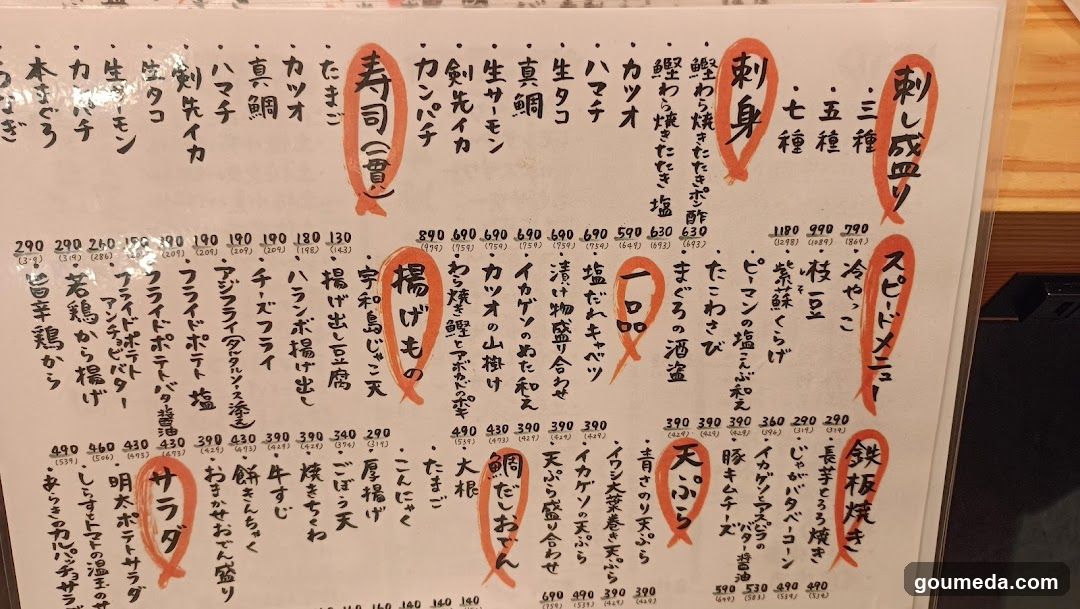 刺し盛り
・三種 790 (869)
・五種 990 (1089)
・七種 1180 (1298)
刺身
・鰹わら焼きたたきポン酢 630 (693)
・鰹わら焼きたたき塩 630 (693)
・カツオ 590 (649)
・ハマチ 690 (759)
・生タコ 690 (759)
・真鯛 690 (759)
・生サーモン 690 (759)
・剣先イカ 690 (759)
・カンパチ 890 (979)
寿司(一貫)
・たまご 130 (143)
・カツオ 180 (198)
・真鯛 190 (209)
・ハマチ 190 (209)
・剣先イカ 190 (209)
・生タコ 190 (209)
・生サーモン 190
・カンパチ 260 (286)
・本まぐろ 290 (319)
290 (319)
スピードメニュー
・冷やっこ 290 (319)
・枝豆 290 (319)
・紫蘇くらげ 360 (396)
・ピーマンの塩こんぶ和え 390 (429)
・たこわさび 390 (429)
・まぐろの酒盗 390 (429)
一品
・塩だれキャベツ 390 (429)
・漬け物盛り合わせ 390 (429)
・イカゲソのぬた和え 390 (429)
・カツオの山掛け 430 (473)
・わら焼き鰹とアボカドのポキ 490 (539)
揚げもの
・宇和島じゃこ天 290 (319)
・揚げ出し豆腐 340 (374)
・ハランボ揚げ出し 390 (429)
・チーズフライ 390 (429)
・アジフライ(タルタルソース添え) 430 (473)
・フライドポテト 塩 390 (429)
・フライドポテト バタ醤油 430 (473)
・フライドポテト アンチョビバター 430 (473)
・若鶏から揚げ 460 (506)
・旨辛鶏から 490 (539)
鉄板焼き
・長芋とろろ焼き 490 (539)
・じゃがバタベーコーン 490 (539)
・イカゲソとアスパラのバター醤油 530 (583)
・豚キムチーズ 590 (649)
天ぷら
・青さのり天ぷら 390 (429)
・イワシ大葉巻き天ぷら 390 (429)
・イカゲソの天ぷら 490 (539)
・天ぷら盛り合わせ 690 (759)
鯛だしおでん
・大根 140
・たまご 140
・こんにゃく 140
・厚揚げ
・ごぼう天
・焼きちくわ
・牛すじ
・餅きんちゃく
・おまかせおでん盛り
サラダ
・明太ポテトサラダ
・しらすとトマトの温玉のサ
goumeda.com